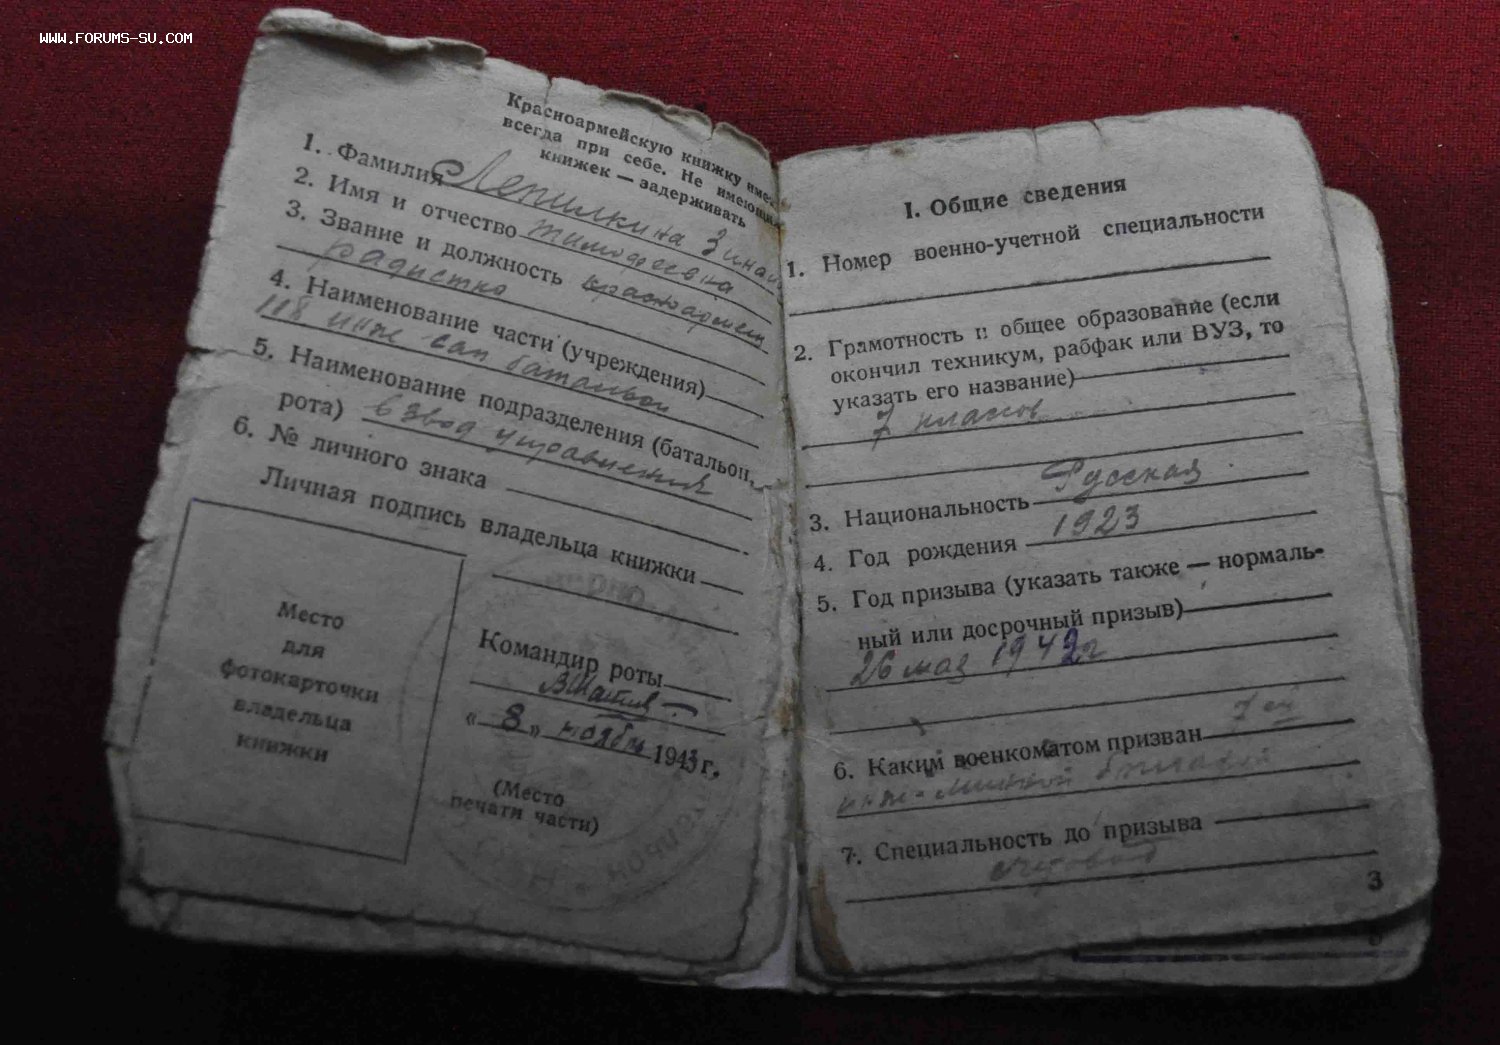 WWW.FORUMS-SU.COM
Красноармейскую книжку иметь
всегда при себе. Не имеющих
книжек — задерживать
1. Фамилия Лепилкина Зинаи
2. Имя и отчество Тимофеевна
3. Звание и должность красноармеец
радистка
4. Наименование части (учреждения)
118 инж сап батальон
5. Наименование подразделения (батальон,
рота) взвод управления
6. № личного знака
Личная подпись владельца книжки
Место
для
фотокарточки
владельца
книжки
Командир роты
« 8 » ноября 1943 г.
(Место
печати части)
I. Общие сведения
1. Номер военно-учетной специальности
2. Грамотность и общее образование (если
окончил техникум, рабфак или ВУЗ, то
указать его название)
7 классов
3. Национальность Русская
4. Год рождения 1923
5. Год призыва (указать также — нормаль-
ный или досрочный призыв)
26 мая 1942 г
6. Каким военкоматом призван 7 ой
инж-минной бригадой
7. Специальность до призыва
счетовод
3